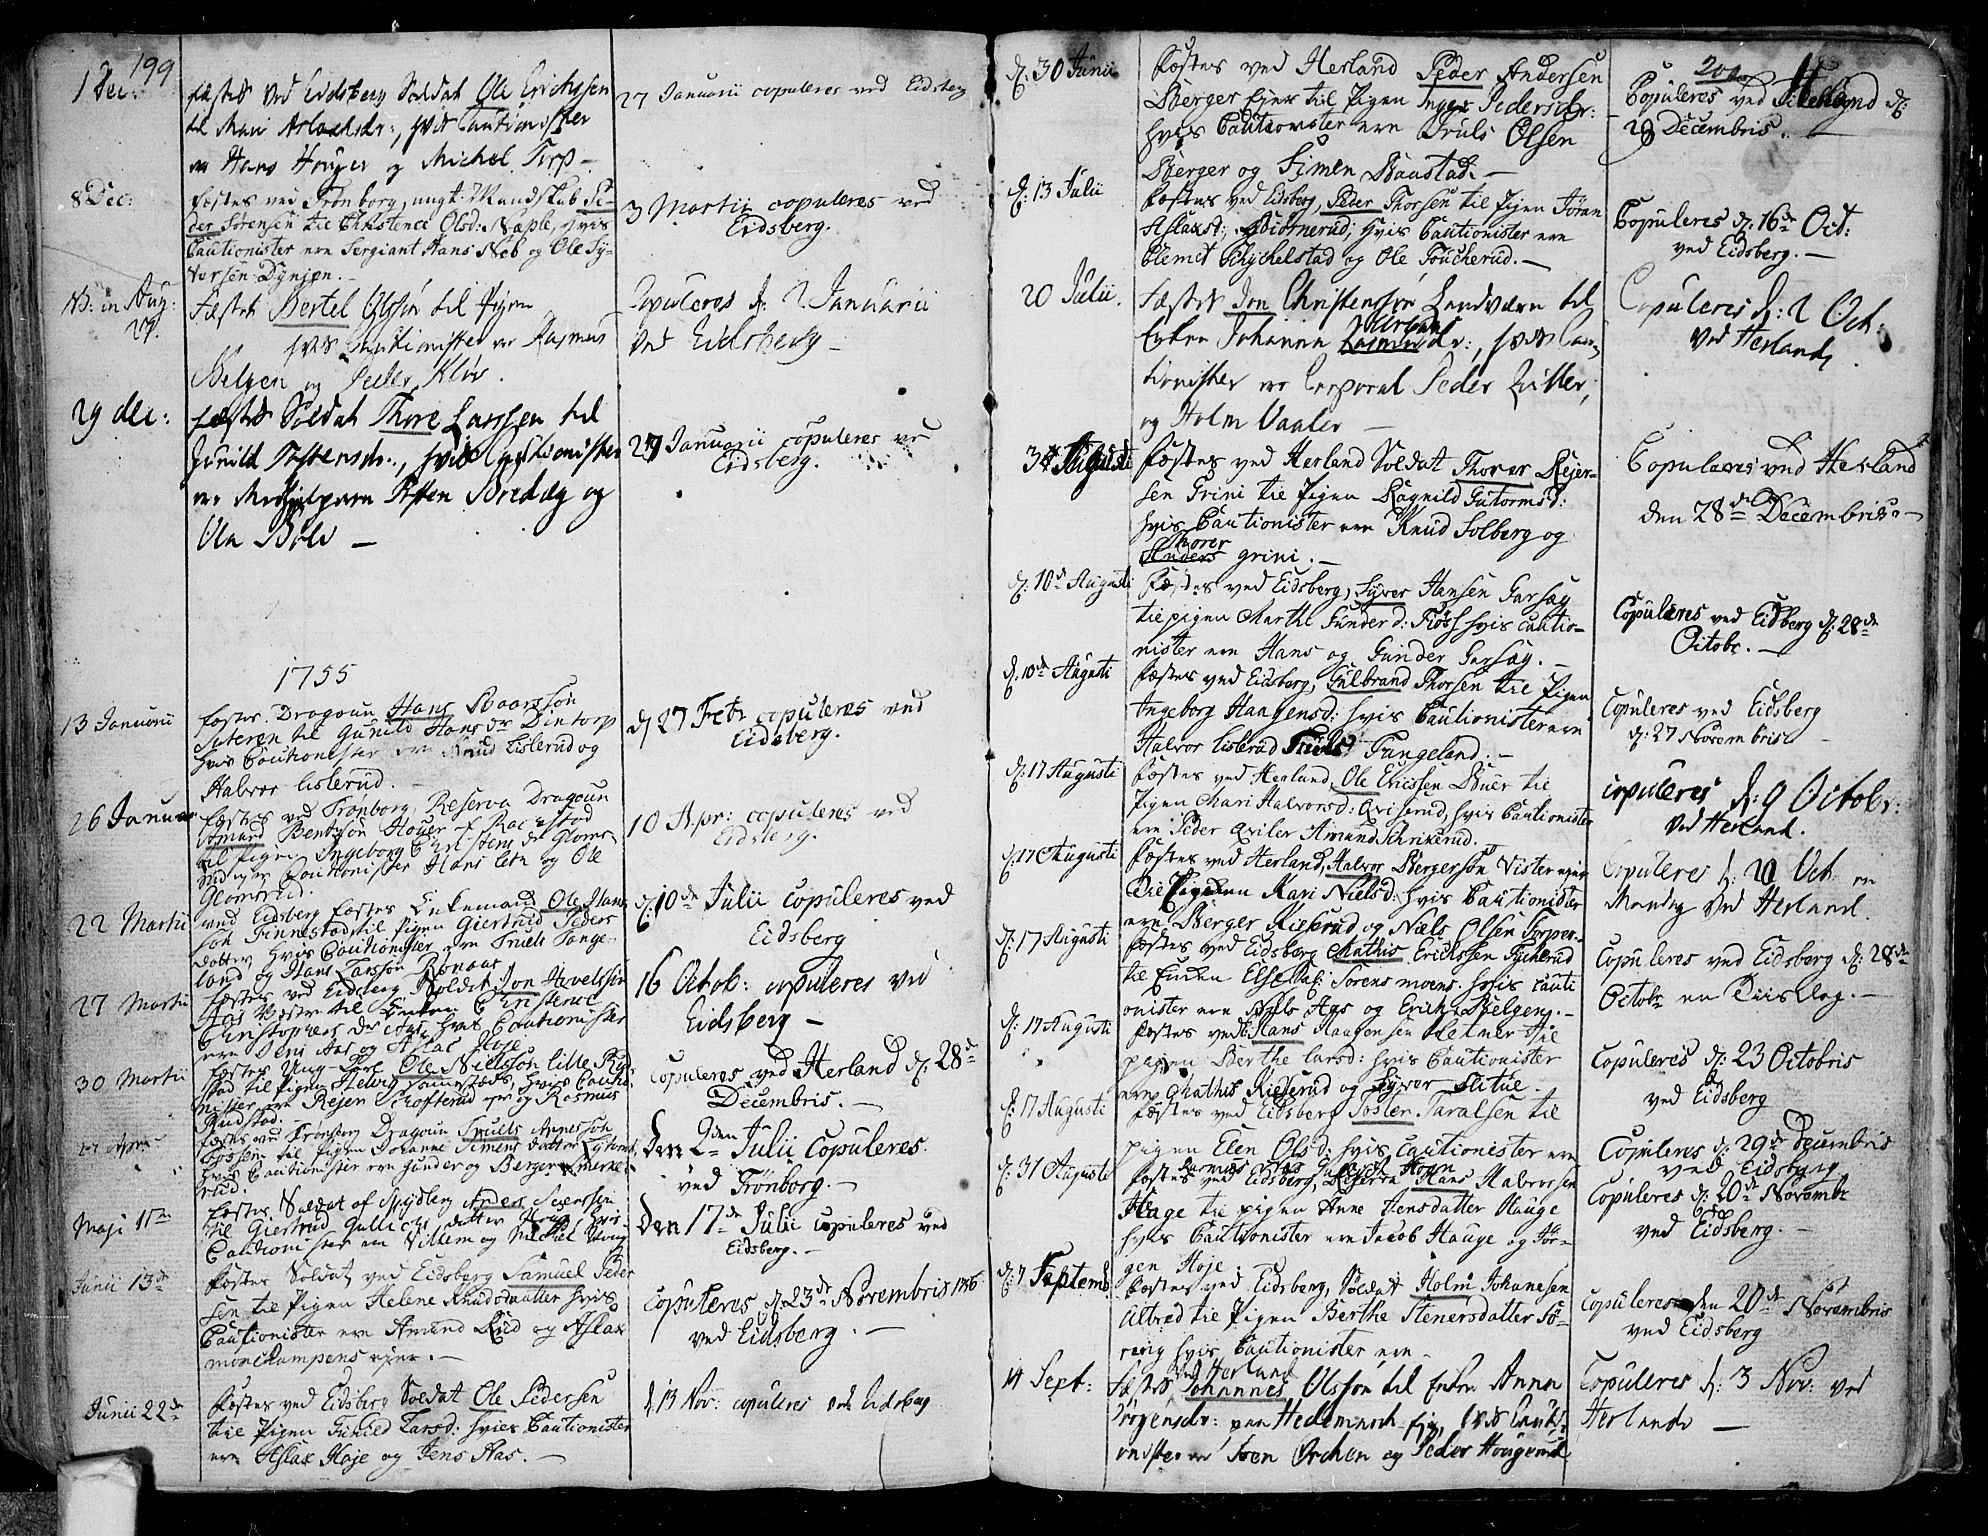 199
1 Dec:
fæstes ved Eidsberg Soldat Ole Erichssen
til Mari Aslachsdr:, hvis Cautionister
er Hans Houger og Michel Torp -
27 Januarii copuleres ved Eidsberg
8 Dec:
fæstes ved Trönborg, ungt Mandskab Pe-
der Sörensen til Christence Olsd: Naple, hvis
Cautionister ere Sergiant Hans Næb og Ole Sy-
versen Dynjen. -
3 Martii copuleres ved
Eidsberg.
NB: in Aug:
29.
Fæstet Bertel Olssön til Pigen
hvis Cautionister er Rasmus
Melgen og Peder Kløv.
Copuleres d: 2 Januarii
ved Eidsberg -
29 dec:
fæstet Soldat Thore Larssen til
Gunild Tostensdr., hvis Cautionister
er Tosten Bredag og
Ola Böle -
29 Januarii copuleres ved
Eidsberg.
1755
13 Januarii
fæstes Dragoun Hans Baarssön
Suteren til Gunild Hansdr Dintorp
hvis Cautionister er Knud Lislerud og
Halvor Lislerud. -
d 27 Febr copuleres ved
Eidsberg.
26 Januar
fæstes ved Trönborg, Reserva Dragoun
Amund Bentssön Houer
til Pigen Ingeborg Christens dr Gloms-
rud, hvis Cautionister Hans og Ole
Glomsrud.
10 Apr: copuleres ved
Eidsberg.
22 Martii
ved Eidsberg fæstes Enkemand Ole Han-
sön Finnestad til Pigen Giertrud Peders
dotter, hvis Cautionister ere Truels Tange-
land og Hans Larssön
d: 10de Julii copuleres ved
Eidsberg
27 Martii
fæstes ved Eidsberg Soldat Jon Havelssön
Aas Vester til Enken Christence
Christophers dr Aas, hvis Cautionister
ere Jens Aas og Aslac Hoje
16 Octob: copuleres ved
Eidsberg -
30 Martii
fæstes Ung-Karl Ole Nielssön lille Rud
stad til Pigen Helvig sammesteds, hvis Cautio-
nister ere Rejer Krofterud og Rasmus
Rudstad. -
copuleres ved Herland d: 28de
Decembris. -
fæstes ved Trönborg Dragoun Truels Annerssön
til Pigen Johanne Simens datter
hvis Cautionister ere Gunder og Berger
rud.
Den 9den Julii copuleres
ved Trönborg. -
Maji 11te
fæstes Soldat af Spydberg Anders Svenssen
til Giertrud Gullichs datter Houg, hvis
Cautionister ere Villem og Michel Houg
Den 17de Julii copuleres ved
Eidsberg. -
Junii 13de
fæstes Soldat ved Eidsberg Samuel Peder
sen til Pigen Helene Knudsdatter hvis
Cautionister ere Amund Rud og Aslax
Monekampens ejer. -
copuleres d: 23de Novembris 1756
ved Eidsberg. -
Junii 22de
fæstes ved Eidsberg Soldat Ole Pedersen
til Pigen Gunild Larsd: hvis Cautionister
ere Aslax Hoje og Jens Aas. -
d 13 Nov: copuleres ved Eidsberg
200
d: 30 Junii
fæstes ved Herland Peder Andersen
Berger ejer til Pigen Inger Pedersdr:
hvis Cautionister ere Truls Olsen
Berger og Simen Baastad. -
Copuleres ved Herland d:
28 Decembris. -
d: 13 Julii
fæstes ved Eidsberg, Peder Thorsen til Pigen Jöran
Aslaxd: hvis Cautionister ere
Clemit Thychelstad og Ole Toucherud. -
Copuleres d: 16de Oct:
ved Eidsberg. -
20 Julii.
Fæstes Jon Christenssön Landværn til
Enken Johanna hvis Cau-
tionister er Corporal Peder Quiller,
og Holm Vaaler -
Copuleres d: 2 Oct:
ved Herland.
3 Augusti
fæstes ved Herland Soldat Thorer Rejer-
sen Grini til Pigen Ragnild Gutormsd:
hvis Cautionister ere Knud Solberg og
Thorer
Anders Grini. -
Copuleres ved Herland
den 28de Decembris. -
d: 10de Augusti
fæstes ved Eidsberg, Syver Hansen Garsæg
til pigen Marthe Gunderd: Fiöss hvis cautio-
nister ere Hans og Gunder Garsæg. -
Copuleres ved Eidsberg d: 28de
Octobr. -
d: 10de Augusti
fæstes ved Eidsberg, Gulbrand Thorsen til Pigen
Ingeborg Haagensd: hvis Cautionister ere
Halvor Lislerud Truls Tangeland. -
Copuleres ved Eidsberg
d: 27 Novembris -
d: 17 Augusti
fæstes ved Herland, Ole Ericssen Buer til
Pigen Mari Halvorsd: hvis Cautionister
ere Peder Amund Schrikerud.
copuleres d: 9 Octobr:
ved Herland.
d: 17 Augusti
fæstes ved Herland, Halvor Bergerssön Vister ejer
til Pigen Kari Nielsd: hvis Cautionister
ere Berger Kieserud og Niels Olsen Torper.
Copuleres d: 20 Oct: en
Mandag ved Herland.
d: 17 Augusti
fæstes ved Eidsberg Mathis Erichssen Tycherud
til Enken Else Sörensmoens hvis cauti
onister ere Niels Aas og Erich Melgen. -
Copuleres ved Eidsberg d: 28de
Octobr en Tiisdag. -
d: 17 Augusti
fæstes ved E: Hans Haagensen til
pigen Berthe Larsd: hvis Cautionister
ere Mathis Kieserud og Syver Slitue.
Copuleres d: 23 Octobris
ved Eidsberg
d: 17 Augusti
fæstes ved Eidsberg Tosten Taralsen til
pigen Elen Olsd: hvis cautionister ere
Copuleres d: 29de Decembris
ved Eidsberg
d: 31 Augusti
fæstes ved Eidsberg, Reserva Hans Halvorsen
Hage til pigen Anne Jensdatter Hauge
hvis Cautionister ere Jacob Hauge og Jör-
gen Hoje.
Copuleres d: 20de Novembr
ved Eidsberg. -
d: 7 Septemb
fæstes ved Eidsberg, Soldat Holm Johanesen
Altred til Pigen Berthe Stenersdatter Sö-
reng hvis Cautionister ere -
copuleres den 20de Novembris
ved Eidsberg
14 Sept:
ved Herland
Fæstes Johannes Olssön til Enken Anna
Jörgensdr: paa Hedemarch ejer, hvis Cauti-
onister er Sven Orchen og Peder Hougerud
Copuleres d: 3 Nov: ved
Herland -